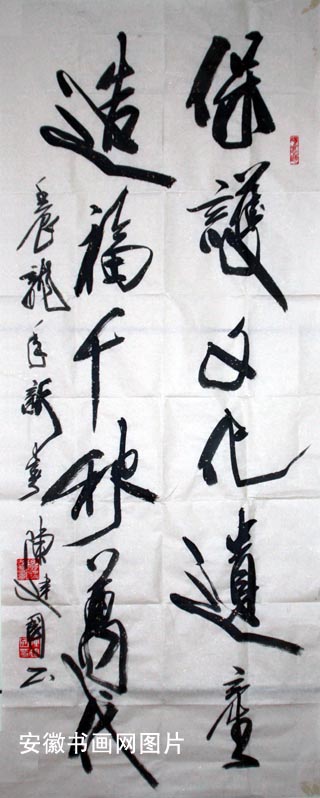 保護文化遺產
造福千秋萬代
壬辰龍年新春 陳建國書
安徽书画网图片